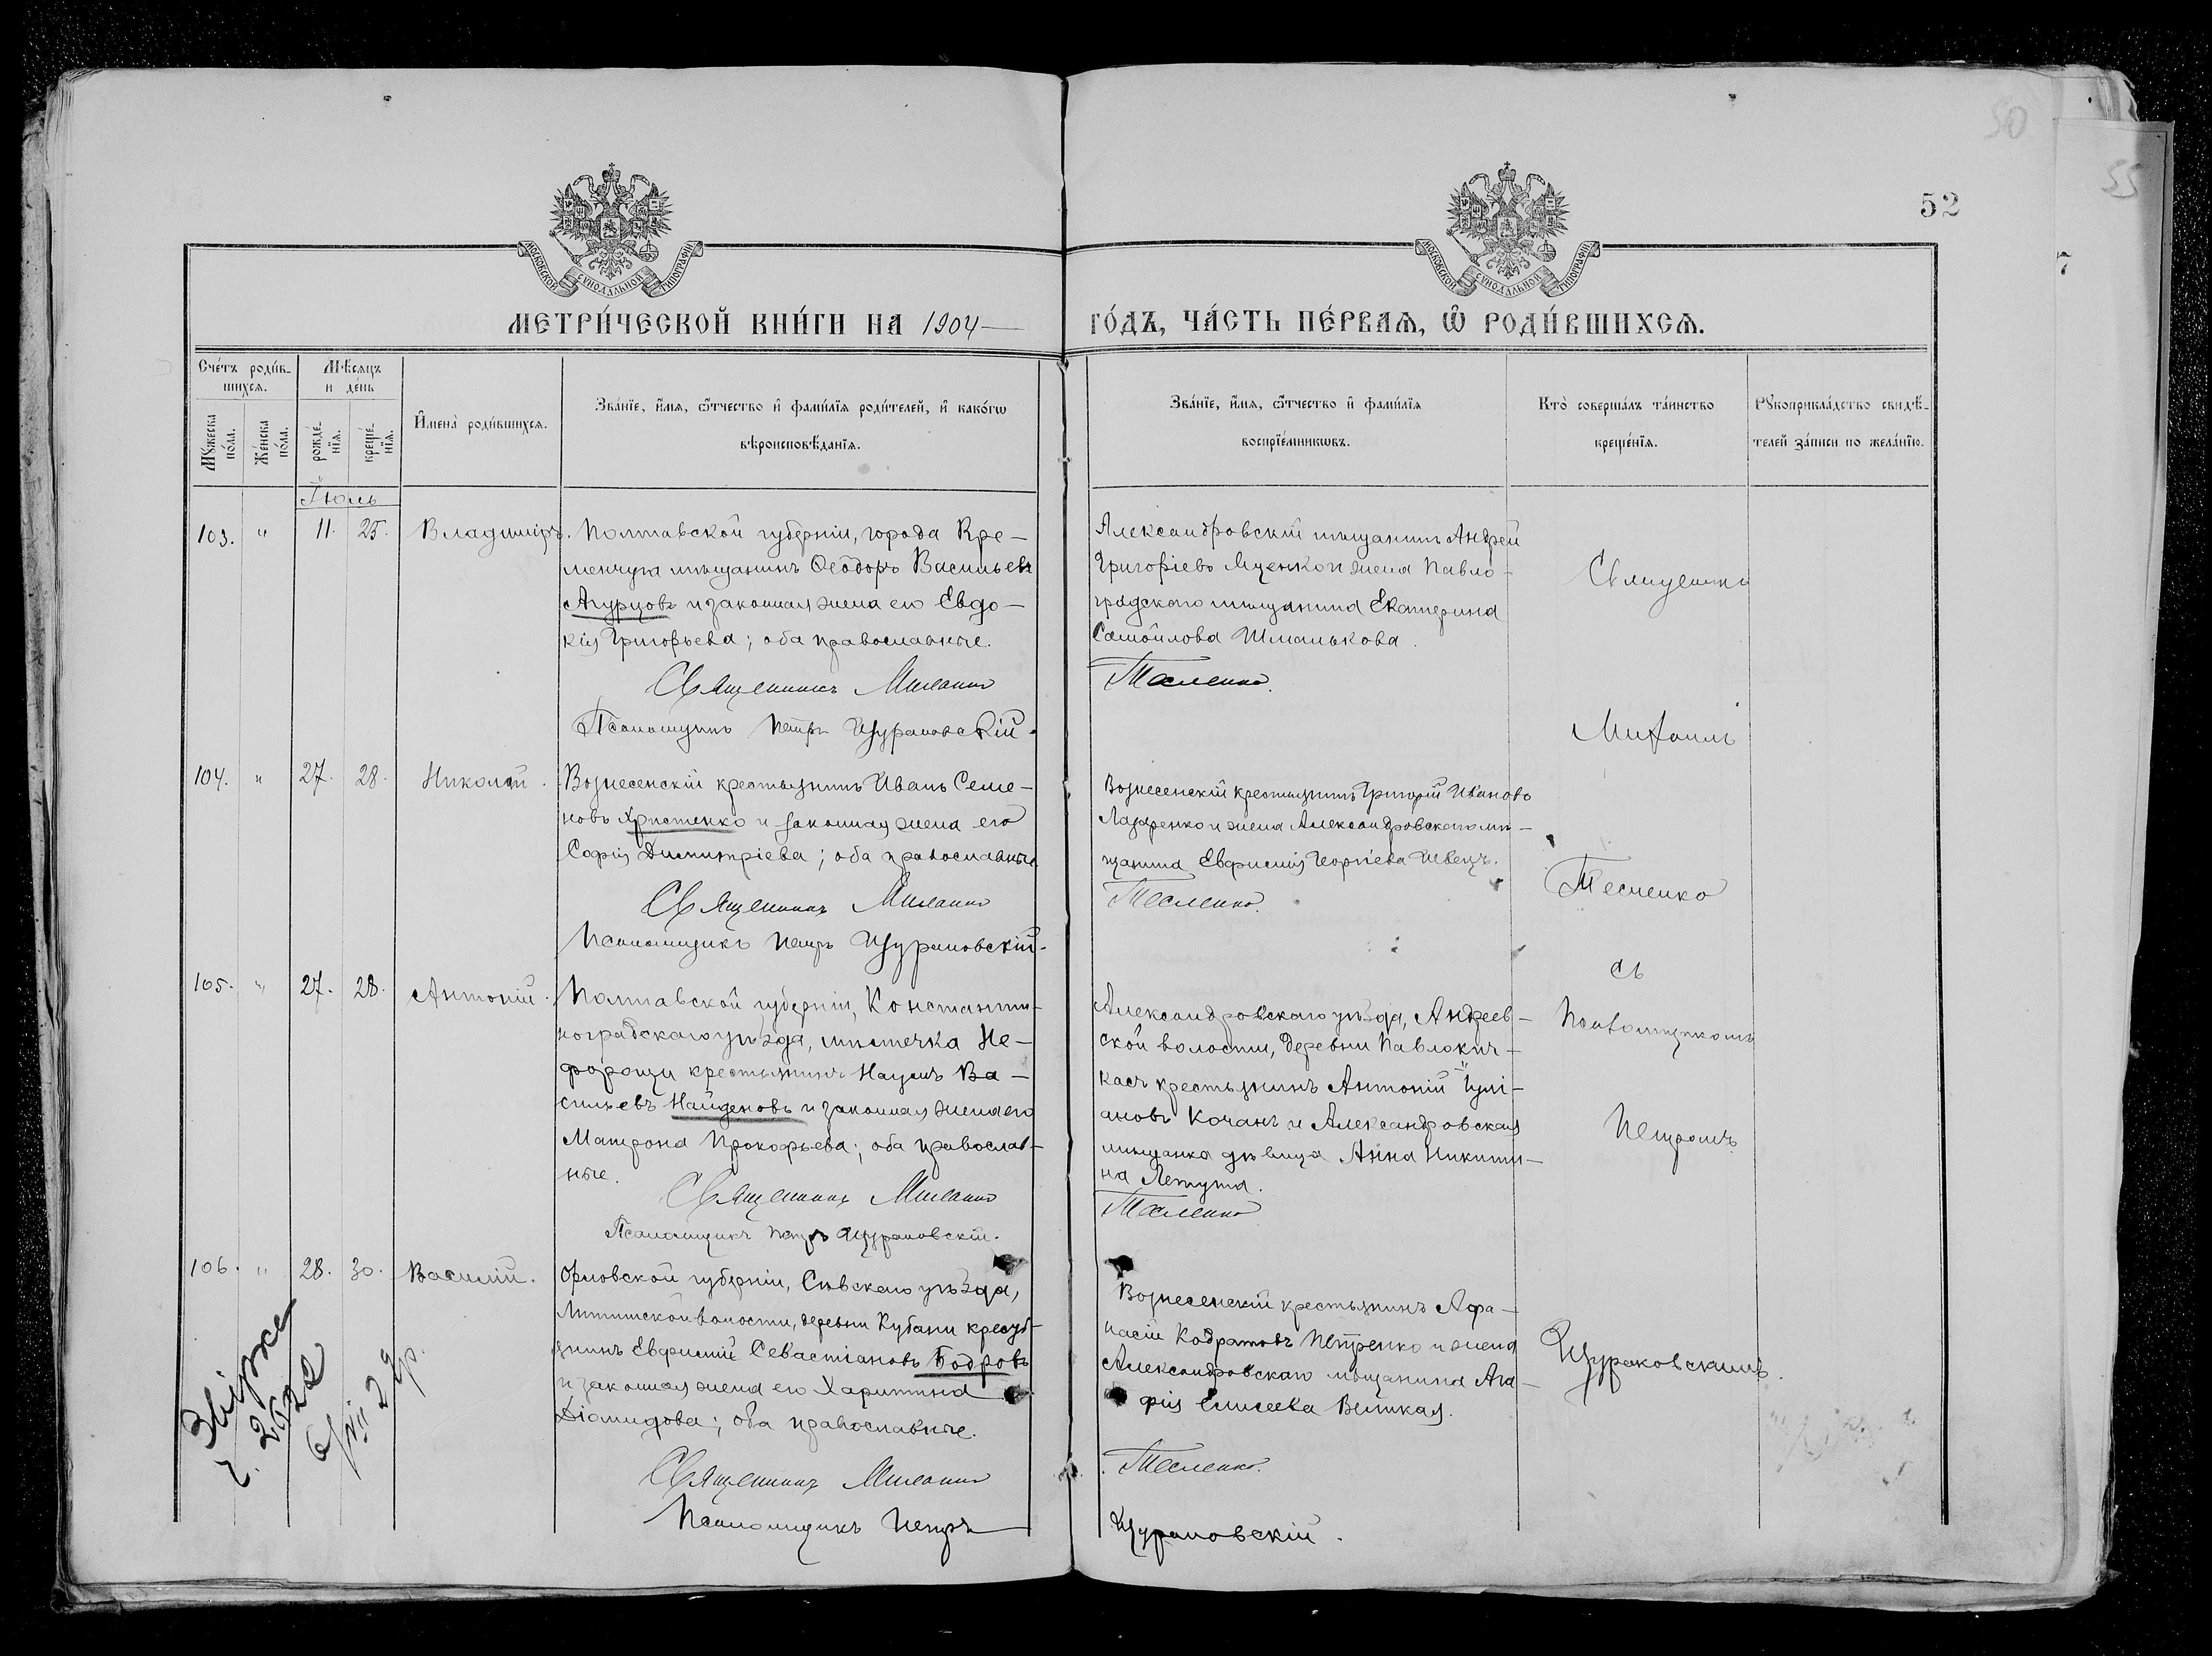 50
55
52
7
МОСКОВСКОЙ СѴНОДАЛЬНОЙ ТИПОГРАФІИ
МОСКОВСКОЙ СѴНОДАЛЬНОЙ ТИПОГРАФІИ
МЕТРИ́ЧЕСКОЙ КНИ́ГИ НА 1904
ГО́ДЪ, ЧА́СТЬ ПЕ́РВАѦ, Ѽ РОДИ́ВШИХСѦ.
Сче́тъ роди́в-
шихсѧ.
Мꙋжеска по́ла.
Же́нска по́ла.
Мѣ́сѧцъ
и де́нь
рожде́-
нїѧ.
креще́-
нїѧ.
И҆мена̀ роди́вшихсѧ.
Зва́нїе, и҆́мѧ, ѻ҆́тчество и҆ фамі́лїѧ роди́телей, и҆ како́гѡ
вѣроисповѣ́данїѧ.
Зва́нїе, и҆́мѧ, ѻ҆́тчество и҆ фамі́лїѧ
воспрїе́мникѡвъ.
Кто̀ соверша́лъ та́инство
креще́нїѧ.
Рꙋкоприкла́дство свидѣ́-
телей за́писи по жела́нїю.
Іюль
103. " 11. 25. Владиміръ.
Полтавской губерніи, города Кре-
менчуга мѣщанинъ Ѳеодоръ Васильевъ
Агурцовъ и законная жена его Евдо-
кія Григорьева; оба православные.
Священникъ Михаилъ
Тесленко.
Псаломщикъ Петръ Щурановскій.
Александровскій мѣщанинъ Андрей
Григоріевъ Яценко и жена Павло-
градскаго мѣщанина Екатерина
Самойлова Шманькова.
104. " 27. 28. Николай.
Вознесенскій крестьянинъ Иванъ Семе-
новъ Христенко и законная жена его
Софія Димитріева; оба православные
Священникъ Михаилъ
Тесленко.
Псаломщикъ Петръ Щурановскій.
Вознесенскій крестьянинъ Григорій Ивановъ
Лазаренко и жена Александровскаго мѣ-
щанина Евфимія Георгіева Швецъ.
105. " 27. 28. Антоній.
Полтавской губерніи, Константи-
ноградскаго уѣзда, мѣстечка Не-
форощи крестьянинъ Наумъ Ва-
сильевъ Найденовъ и законная жена его
Матрона Прокофьева; оба православ-
ные.
Священникъ Михаилъ
Тесленко
Псаломщикъ Петръ Щурановскій.
Александровскаго уѣзда, Андреев-
ской волости, деревни Павлокич-
касъ крестьянинъ Антоній Іулі-
ановъ Кочанъ и Александровская
мѣщанка дѣвица Анна Никити-
на Летута.
106. " 28. 30. Василій.
Орловской губерніи, Сѣвскаго уѣзда,
волости, деревни Кубани кресть-
янинъ Евфимій Севастіановъ Бодровъ
и законная жена его Харитина
Діомидова; оба православные.
Священникъ Михаилъ
Тесленко.
Псаломщикъ Петръ
Щурановскій.
Вознесенскій крестьянинъ Афа-
насій Кодратовъ Петренко и жена
Александровскаго мѣщанина Ага-
фія Елисеева Великая.
Священникъ
Михаилъ
Тесленко
съ
Псаломщикомъ
Петромъ
Щурановскимъ.